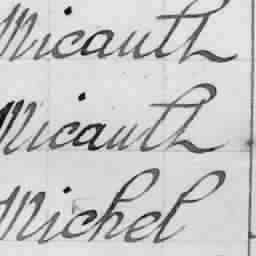 Micauth
Micauth
Michel